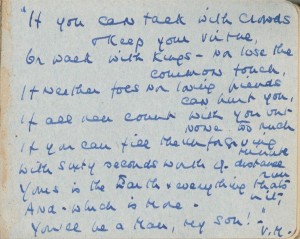 "If you can talk with Crowds
& Keep your Virtue,
Or walk with Kings - nor lose the
common touch,
If neither foes nor loving friends
can hurt you,
If all men count with you but
none too much
If you can fill the unforgiving
minute
With sixty seconds worth of distance
run
Yours is the Earth & everything thats
in it -
And - which is more -
You'll be a Man, my son!" -
V.M.